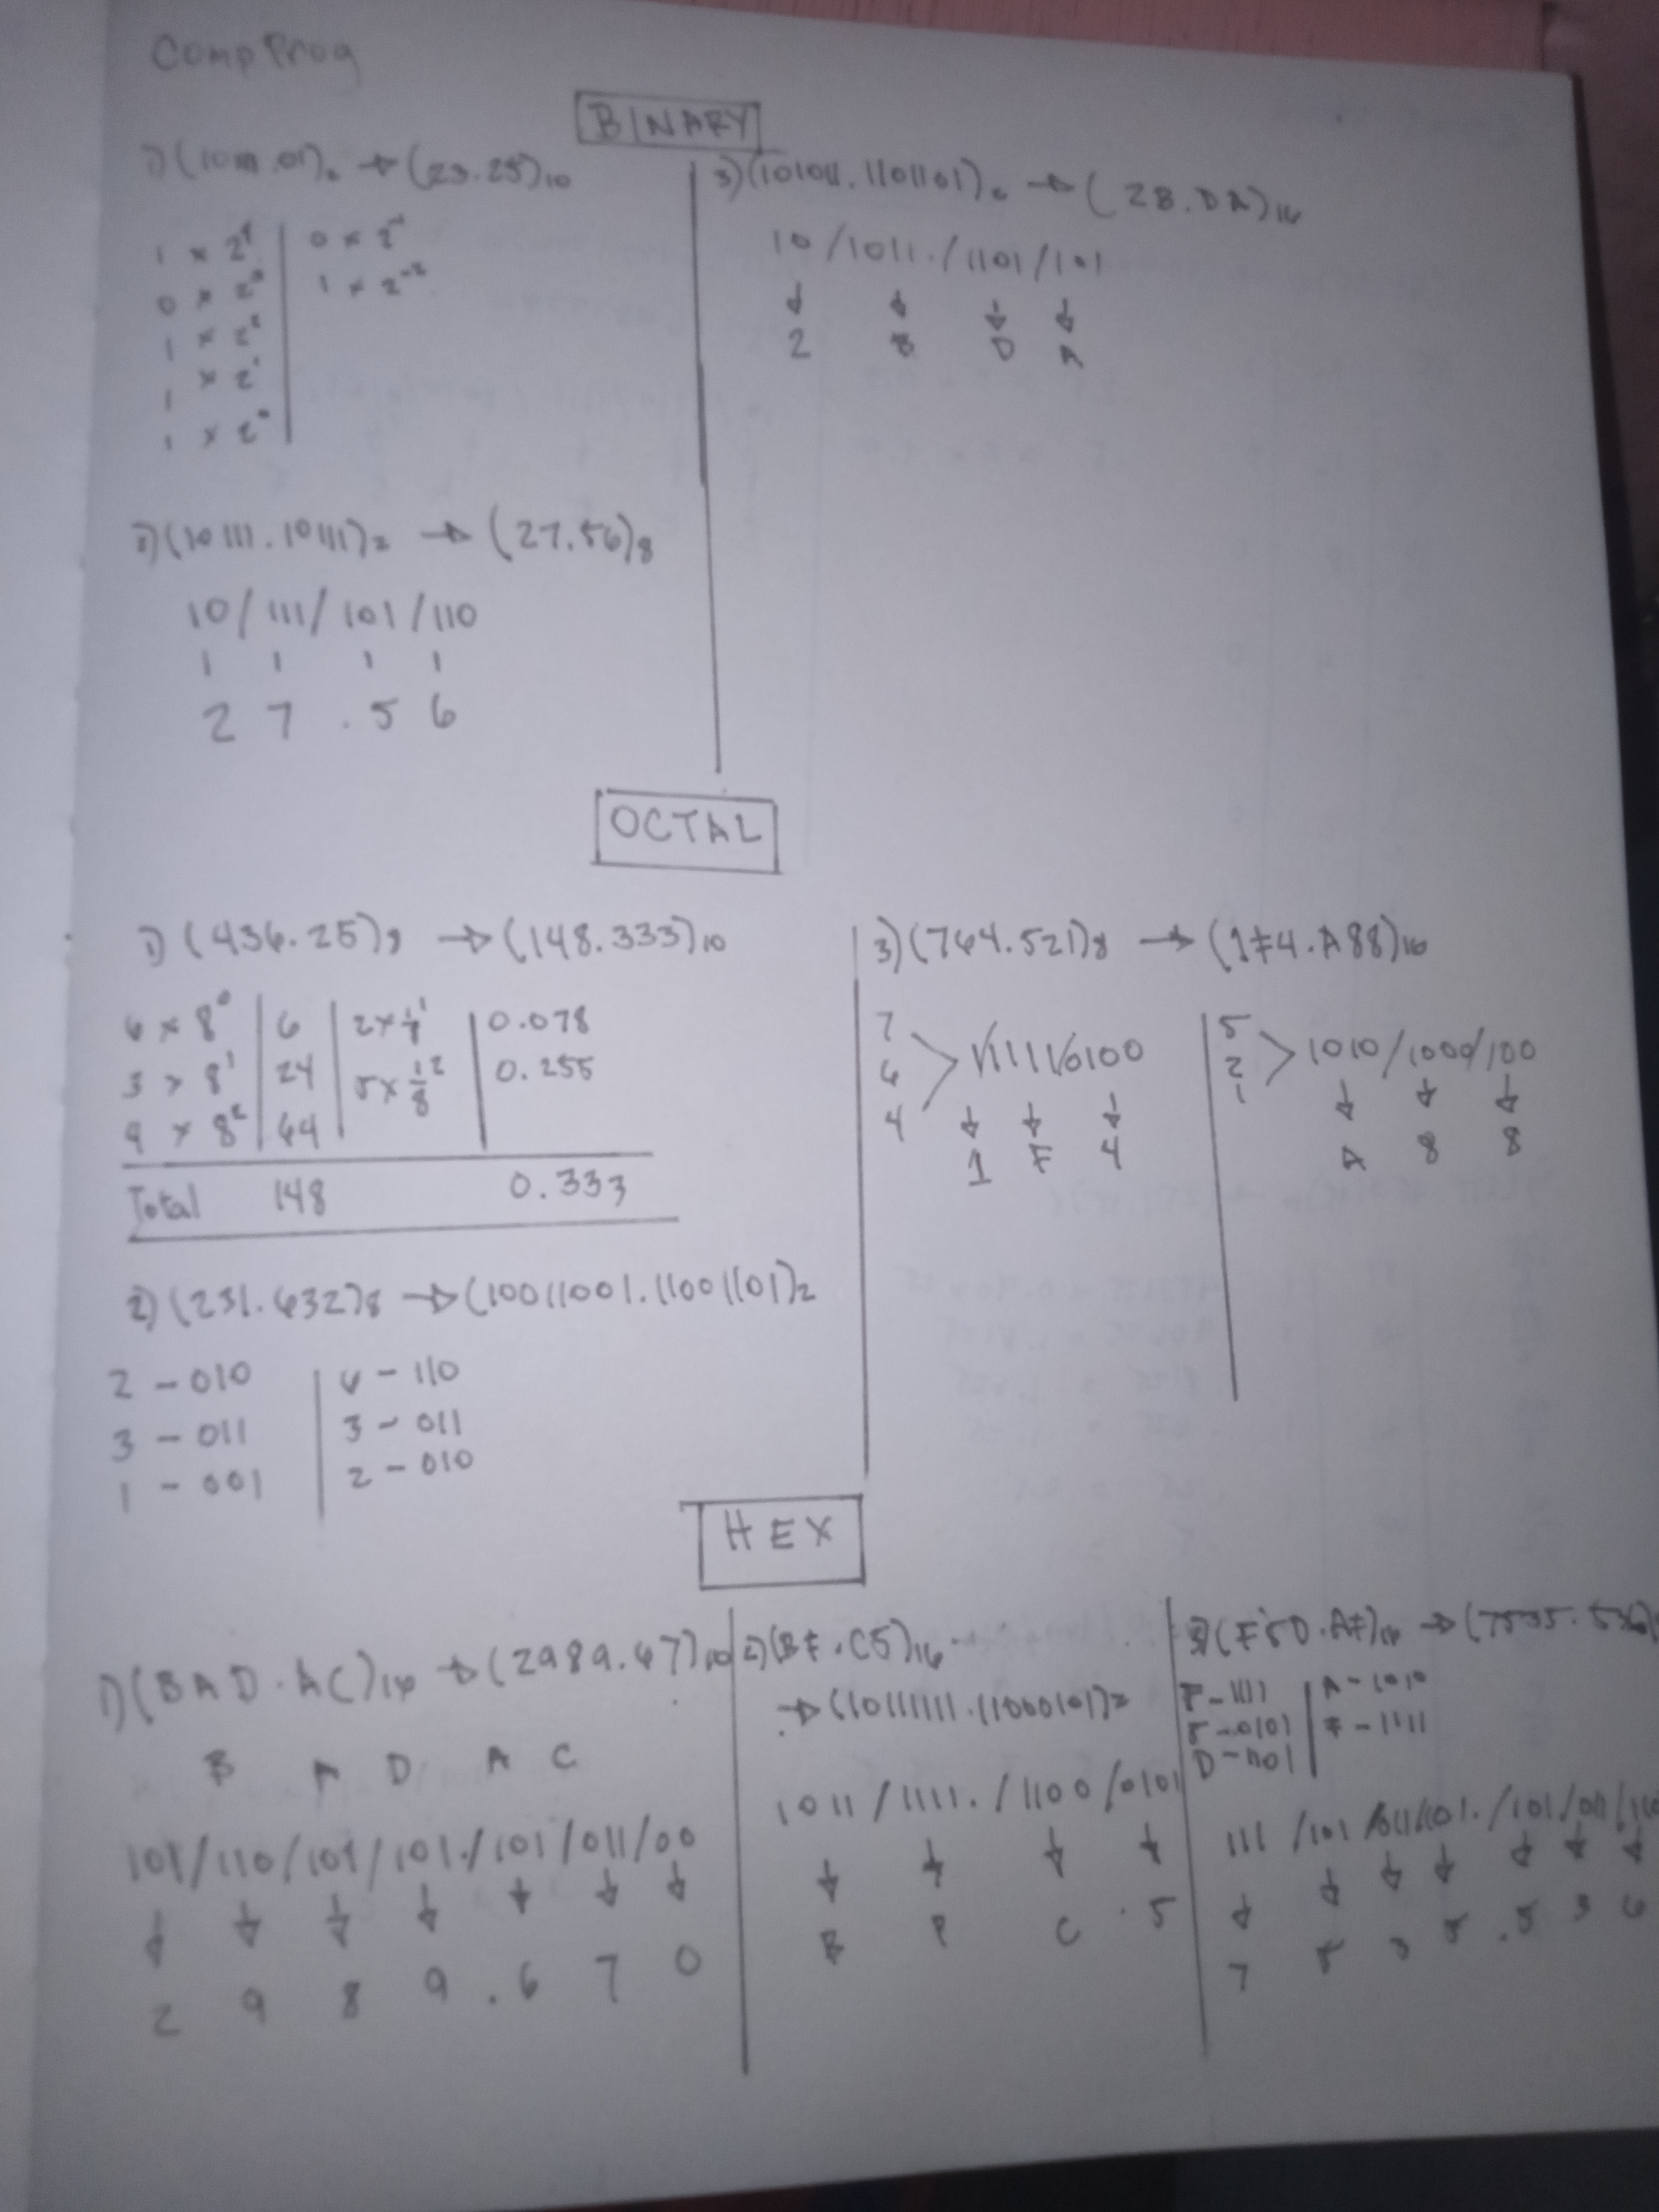 Comp Prog
BINARY
1) (10111.01)₂ → (23.25)₁₀
1 × 2⁴ | 0 × 2⁻¹
0 × 2³ | 1 × 2⁻²
1 × 2²
1 × 2¹
1 × 2⁰
2) (10111.10111)₂ → (27.56)₈
10/111/101/110
2 7 . 5 6
3) (101011.1101101)₂ → (2B.DA)₁₆
10/1011./1101/101
↓ ↓ ↓ ↓
2 B D A
OCTAL
1) (436.25)₈ → (148.333)₁₀
6 × 8⁰ | 6 | 2 × | 0.078
3 × 8¹ | 24 | 5 × | 0.255
4 × 8² | 64
Total 148 0.333
2) (231.632)₈ → (10011001.11001101)₂
2 - 010 | 6 - 110
3 - 011 | 3 - 011
1 - 001 | 2 - 010
3) (764.521)₈ → (1F4.A88)₁₆
7
6
4
↓ ↓ ↓
1 F 4
5
2
1
1010/1000/100
↓ ↓ ↓
A 8 8
HEX
1) (BAD.AC)₁₆ → (2989.67)₁₀
B A D A C
101/110/101/101./101/011/00
↓ ↓ ↓ ↓ ↓ ↓ ↓
2 9 8 9 . 6 7 0
2) (BF.C5)₁₆
→ (10111111.11000101)₂
1011/1111./1100/0101
↓ ↓ ↓ ↓
B F C . 5
3) (F5D.AF)₁₆ → (7535.536)
F - 1111 | A - 1010
5 - 0101 | F - 1111
D - 1101
111/101/011/101./101/011/
↓ ↓ ↓ ↓ ↓ ↓ ↓
7 5 3 5 . 5 3 6